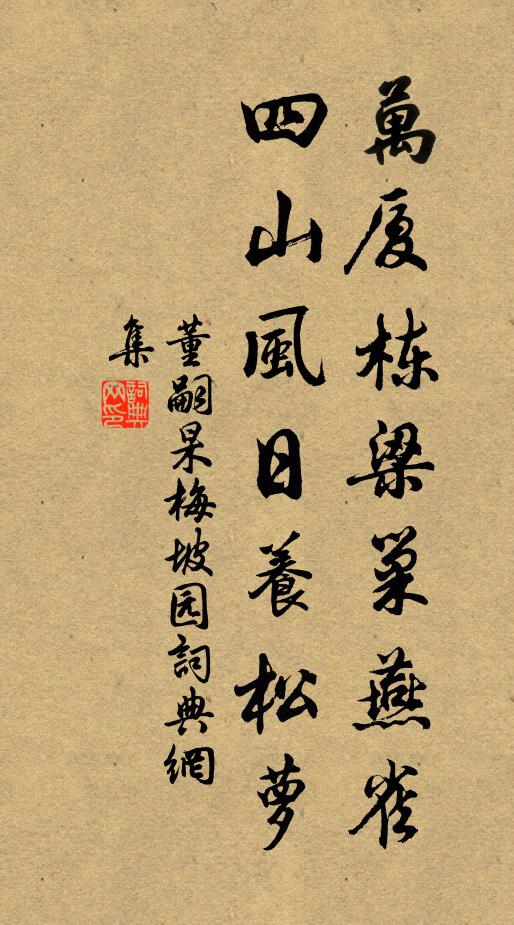 萬厦栋梁巢燕雀
四山風日養松萝
董嗣杲梅坡园詞典網
集
詞典網印